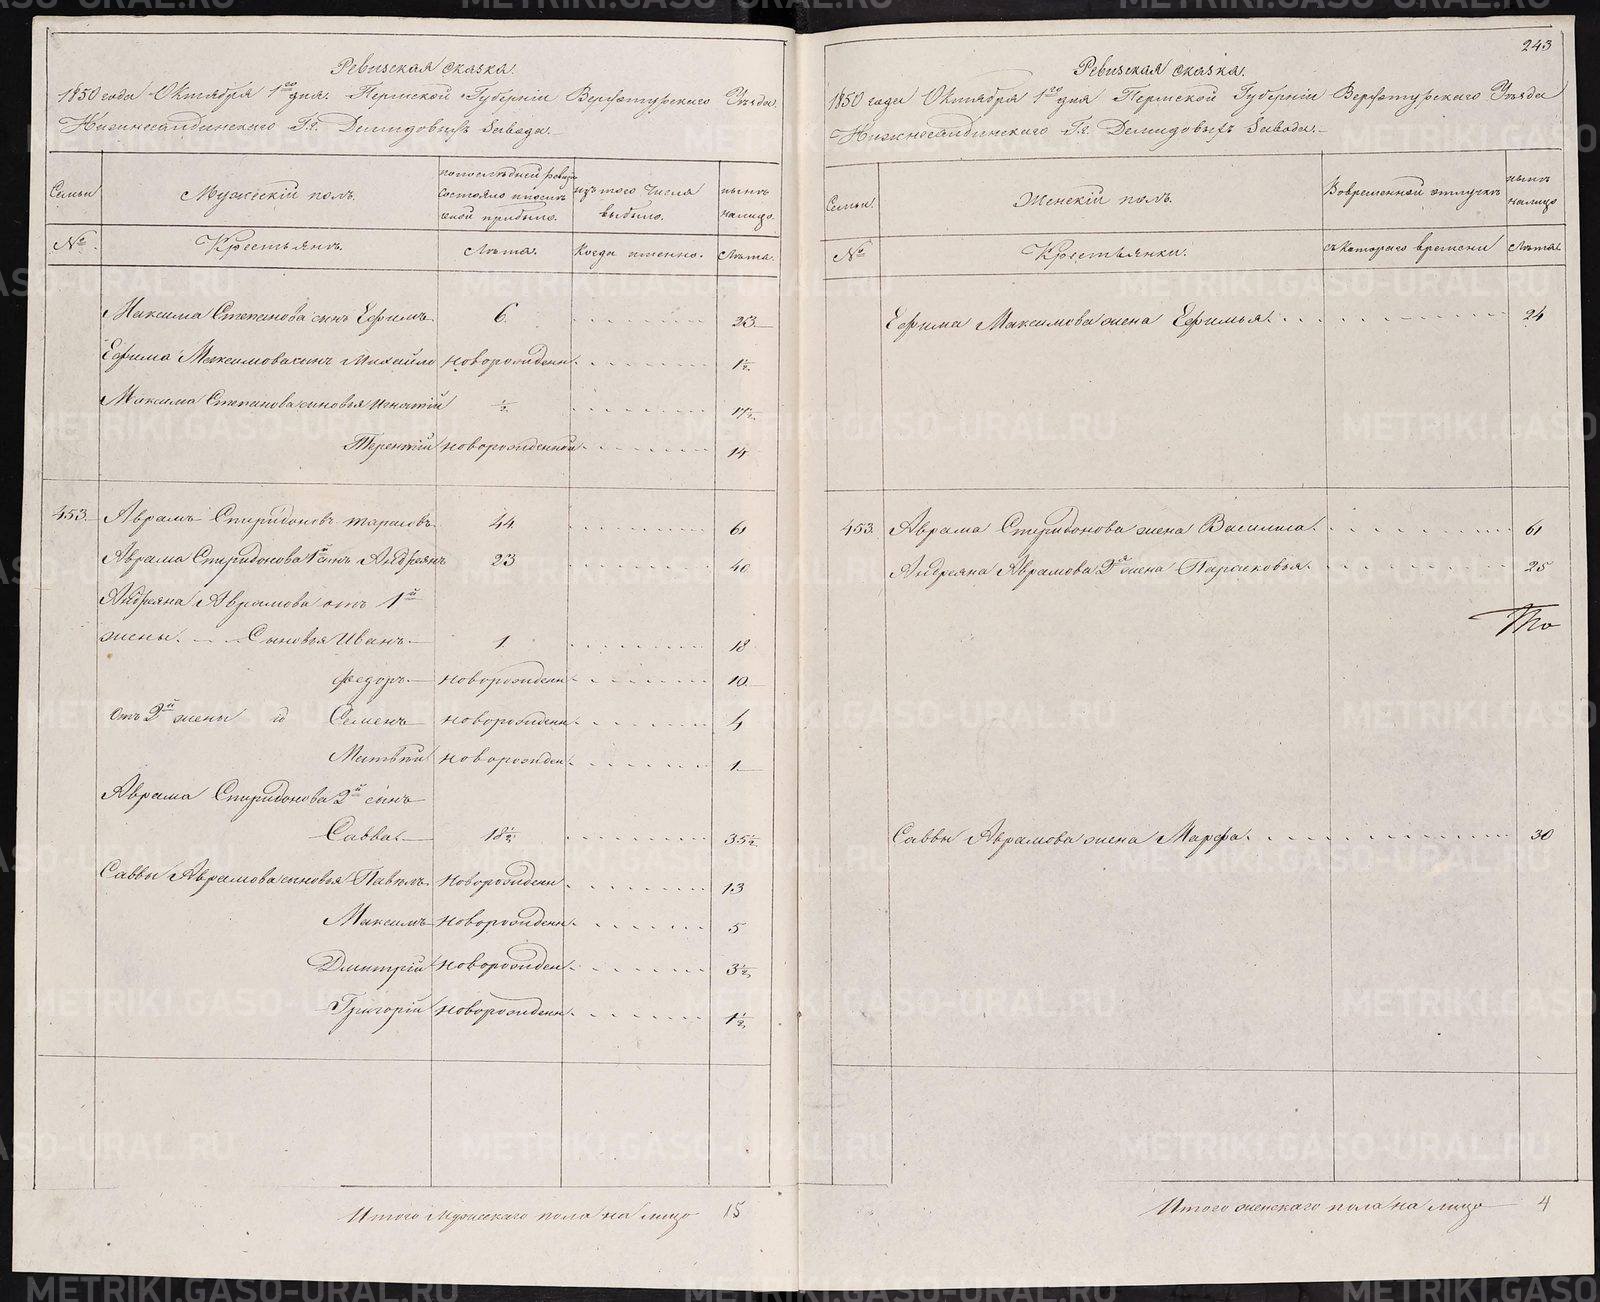 Ревизская сказка.
1850 года Октября 1го дня. Пермской Губернии Верхотурскаго Уезда
Нижнесалдинскаго Г.г. Демидовыхъ Завода.
Семьи
Мужескій полъ.
по последней ревизіи состояло и после оной прибыло.
изъ того числа выбыло.
ныне налицо.
№
Крестьянъ.
Лета.
Когда именно.
Лета.
Максима Степанова сынъ Ефимъ 6 23
Ефима Максимова сынъ Михайло новорожден. 1½
Максима Степанова сыновья Игнатій ½ 17½
Терентій новорожденной 14
453. Аврамъ Спиридоновъ Тарасовъ 44 61
Аврама Спиридонова 1й сынъ Андреянъ 23 40
Андреяна Аврамова отъ 1й
жены. Сыновья Иванъ 1 18
Федоръ новорожден. 10
Отъ 2й жены Семенъ новорожден. 4
Матвей новорожден. 1
Аврама Спиридонова 2й сынъ
Савва. 18½ 35½
Саввы Аврамова сыновья Павелъ новорожден. 13
Максимъ новорожден. 5
Дмитрій новорожден. 3½
Григорій новорожден. 1½
Итого Мужескаго пола на лицо 15
243
Ревизская сказка.
1850 года Октября 1го дня Пермской Губерніи Верхотурскаго Уезда
Нижнесалдинскаго Г.г. Демидовыхъ Завода.
Семьи.
Женскій полъ.
Во временной отлучке
ныне налицо
№
Крестьянки.
съ котораго времени
Лета.
Ефима Максимова жена Ефимья. 24
453. Аврама Спиридонова жена Василиса. 61
Андреяна Аврамова 2я жена Парасковья. 25
То
Саввы Аврамова жена Марфа. 30
Итого женскаго пола на лицо 4
METRIKI.GASO-URAL.RU